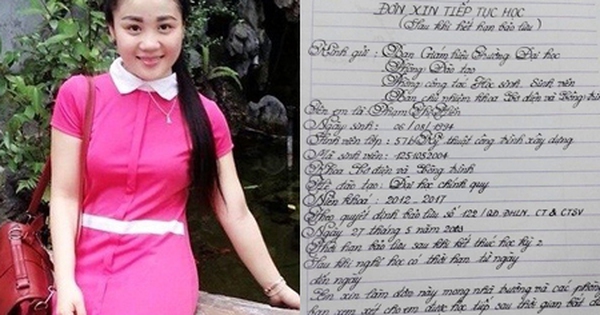 ĐƠN XIN TIẾP TỤC HỌC
(Sau khi hết hạn bảo lưu)
Kính gửi: Ban Giám hiệu trường Đại học
Phòng Đào tạo
Phòng công tác Học sinh, Sinh viên
Ban chủ nhiệm khoa Cơ điện và Công trình
Tên em là: Phạm Thị Hiền
Ngày sinh: 06/08/1994
Sinh viên lớp: 57B Kỹ thuật công trình xây dựng
Mã sinh viên: 1251052004
Khoa Cơ điện và Công trình
Hệ đào tạo: Đại học chính quy
Niên khoá: 2012-2017
Theo quyết định bảo lưu số 122/QĐ.ĐHLN. CT & CTSV
Ngày 27 tháng 5 năm 2013
Thời hạn bảo lưu sau khi kết thúc học kỳ 2
Sau khi nghỉ học có thời hạn từ ngày
đến ngày
Em xin làm đơn này mong nhà trường và các phòng
ban xem xét cho em được học tiếp sau thời gian bảo